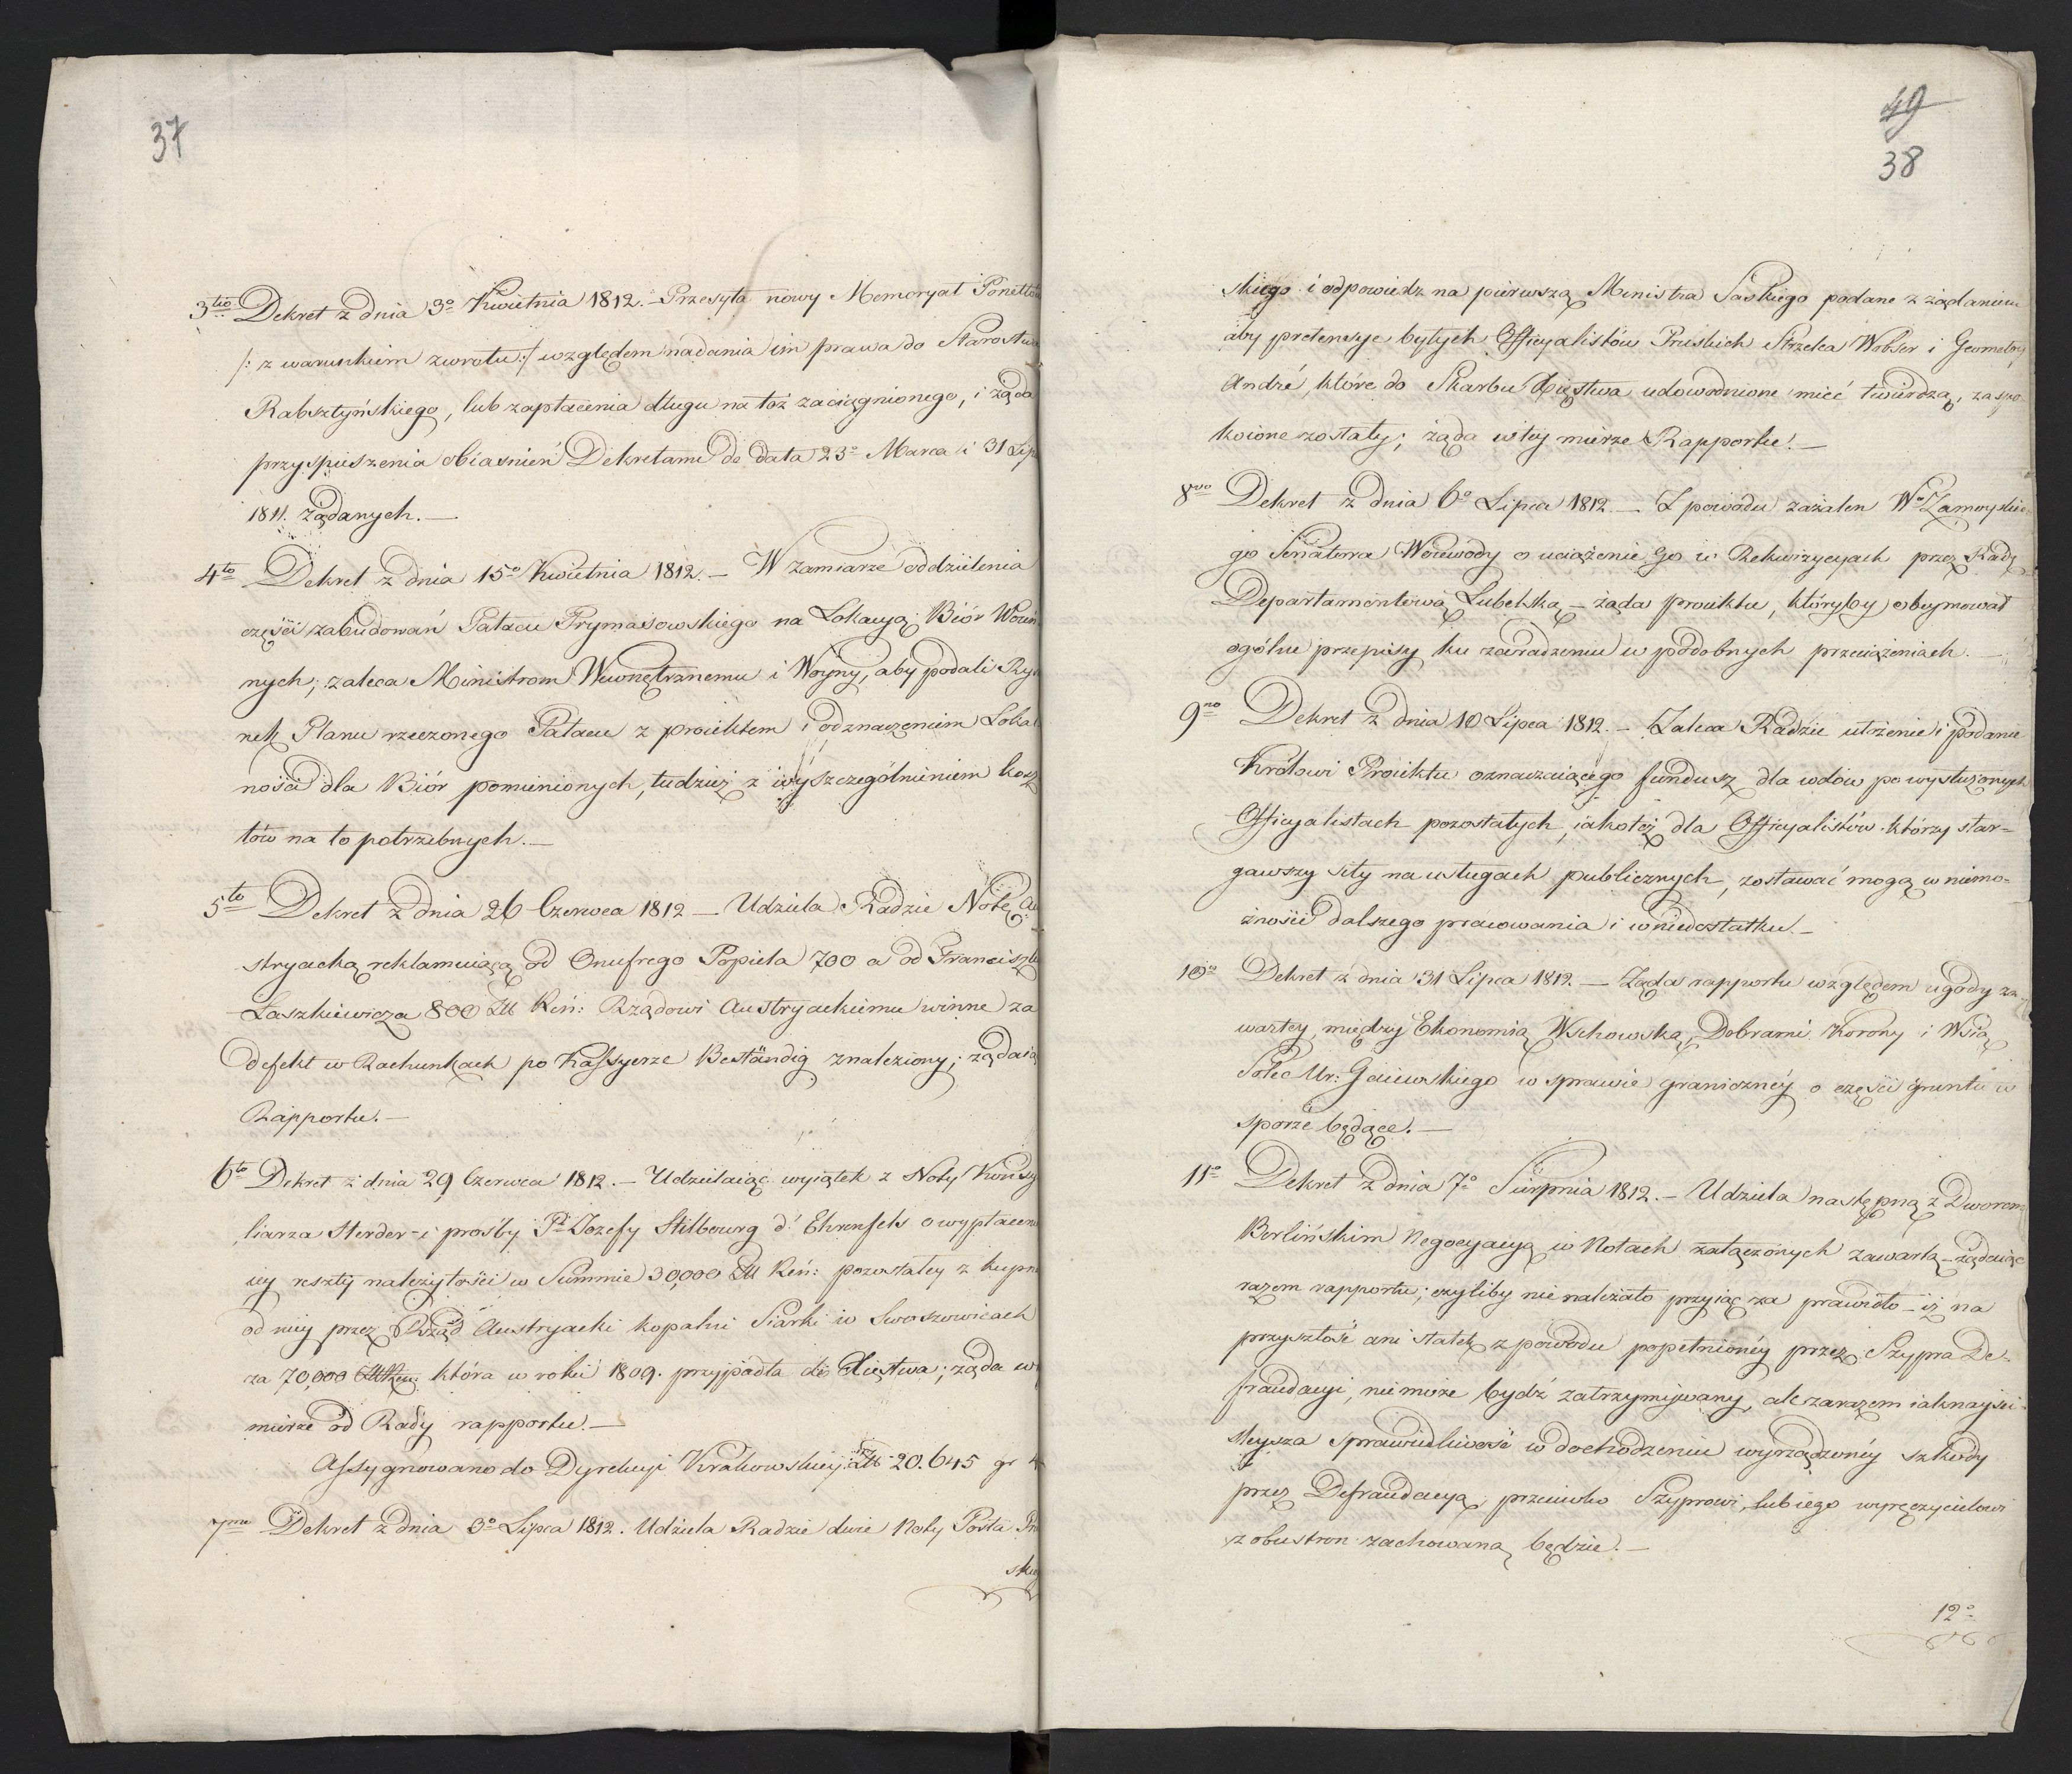 37
3tio Dekret z dnia 3o Kwietnia 1812. – Przesyła nowy Memoryał
/: z warunkiem zwrotu :/ względem nadania im prawa do Starostwa
Rabsztyńskiego, lub zapłacenia długu na toż zaciągnionego, i żąda
przyspieszenia obiaśnień Dekretami de data 23o Marca i 31 Lip
1811. żądanych. —
4to Dekret z dnia 15o Kwietnia 1812. – W zamiarze oddzielenia
części zabudowań Pałacu Prymasowskiego na Lokacyą Biór Woien
nych, zaleca Ministrom Wewnętrznemu i Woyny, aby podali Ry
nek Planu rzeczonego Pałacu z proiektem i odznaczeniem Lokal
ności dla Biór pomienionych, tudzież z wyszczególnieniem kosz
tów na to potrzebnych. —
5to Dekret z dnia 26 Czerwca 1812 — Udziela Radzie Notę Au
stryacką reklamuiącą od Onufrego Popiela 700 a od Franciszka
Laszkiewicza 800 Zł Reń: Rządowi Austryackiemu winne za
defekt w Rachunkach po Kassyerze Beständig znaleziony; żądaią
Rapportu. —
6to Dekret z dnia 29 Czerwca 1812. – Udzielaiąc wyiątek z Noty Konsy
liarza Herder i prośby Pi Jozefy Stilbourg d' Ehrenfels o wypłacenie
iey reszty należytości w Summie 30,000 Zł Reń: pozostałey z kupna
od niey przez Rząd Austryacki kopalni Siarki w Swoszowicach
za 70,000 Zł Reń: która w roku 1809. przypadła do Xięstwa; żąda w
mierze od Rady rapportu. —
Assygnowano do Dyrekcyi Krakowskiey Zł 20.645 gr 4
7mo Dekret z dnia 3o Lipca 1812. Udziela Radzie dwie Noty Posła Pru
skiego
49
38
skiego i odpowiedz na pierwszą Ministra Saskiego podane z żądaniem
aby pretensye byłych Officyalistów Pruskich Strzelca Wobser i Geometry
André, które do Skarbu Xięstwa udowodnione mieć twierdzą, zaspo-
koione zostały; żąda w tey mierze Rapportu. —
8vo Dekret z dnia 6o Lipca 1812. — Z powodu zażaleń Wo Zamoyskie-
go Senatora Woiewody o uciążenie Go w Rekwizycyach przez Radę
Departamentową Lubelską – żąda proiektu, któryby obeymował
ogólne przepisy ku zaradzeniu w podobnych przeciążeniach. —
9no Dekret z dnia 10 Lipca 1812. – Zaleca Radzie ułożenie i podanie
Królowi Proiektu oznaczaiącego fundusz dla wdów po wysłużonych
Officyalistach pozostałych, iakoteż dla Officyalistów którzy star=
gawszy siły na usługach publicznych, zostawać mogą w niemo-
żności dalszego pracowania i w niedostatku. –
10o Dekret z dnia 31 Lipca 1812. — Żąda rapportu względem ugody za
wartey między Ekonomią Wschowską, Dobrami Korony i Wsią
Polec Ur: Gaiewskiego w sprawie graniczney o części gruntu w
sporze będące. —
11o Dekret z dnia 7o Sierpnia 1812. – Udziela następną z Dworem
Berlińskim Negocyacyą w Notach załączonych zawartą – żądaiąc
razem rapportu; czyliby nie należało przyiąc za prawidło – iż na
przyszłość ani statek z powodu popełnioney przez Szypra De-
fraudacyi, nie może bydź zatrzymywany, ale zarazem iaknayści-
sleysza sprawiedliwość w dochodzeniu wyrządzoney szkody
przez Defraudacyą przeciwko Szyprowi, lub iego wyręczycielowi
z obu stron zachowaną będzie. —
12o